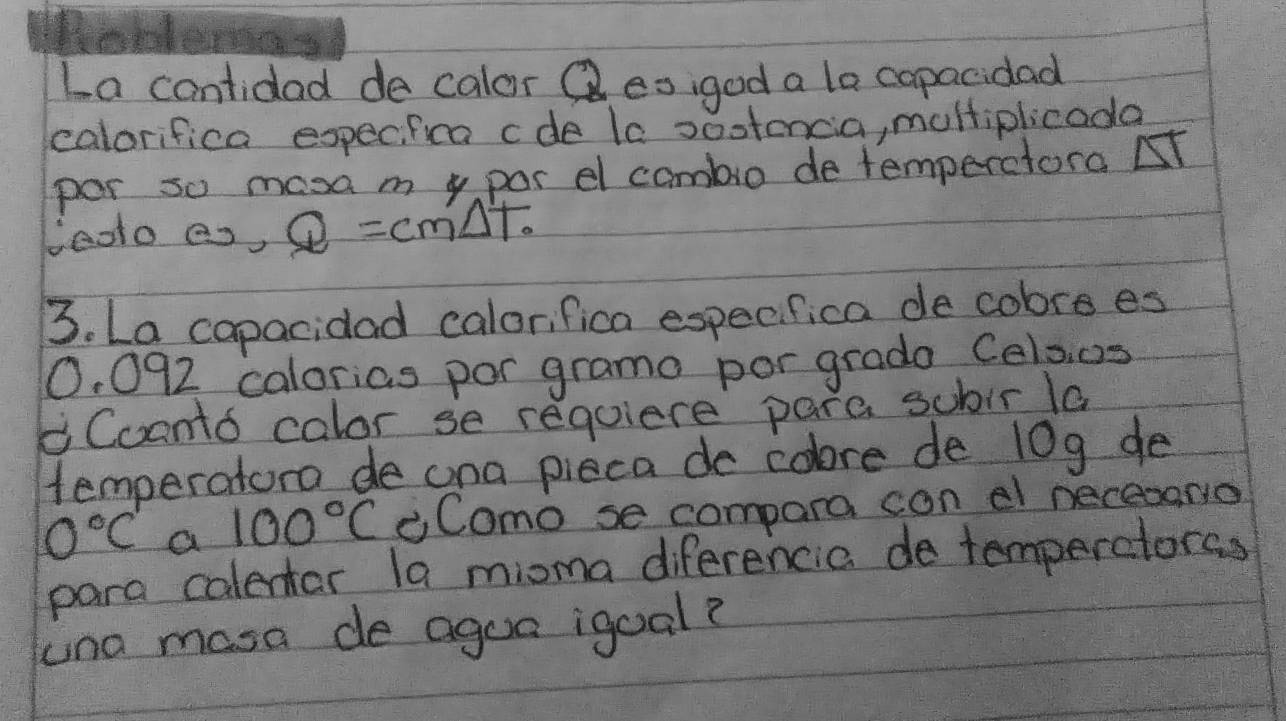 Problemas
La cantidad de calor Q es igual a la capacidad
calorifica especifica c de la sustancia, multiplicada
por su masa m y por el cambio de temperatura ΔT
; esto es, Q = cmΔT.
3. La capacidad calorifica especifica de cobre es
0.092 calorias por gramo por grado Celsius
¿Cuantó calor se requiere para subir la
temperatura de una pieca de cobre de 10g de
0°C a 100°C ¿Como se compara con el necesario
para calentar la misma diferencia de temperaturas
una masa de agua igual?